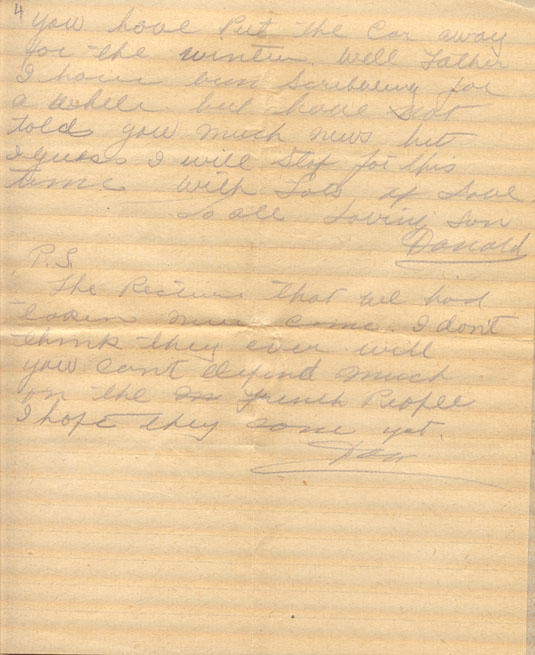 4
you have Put the Car away
for the winter. Well Father
I have been Scribbling for
a while but have not
told you much news but
I guess I will Stop for this
time With Lots of Love
to all Loving Son
Donald
P.S.
The Pictures that we had
taken never come. I don't
think they ever will
you can't depend much
on the French People
I hope they come yet.
Don